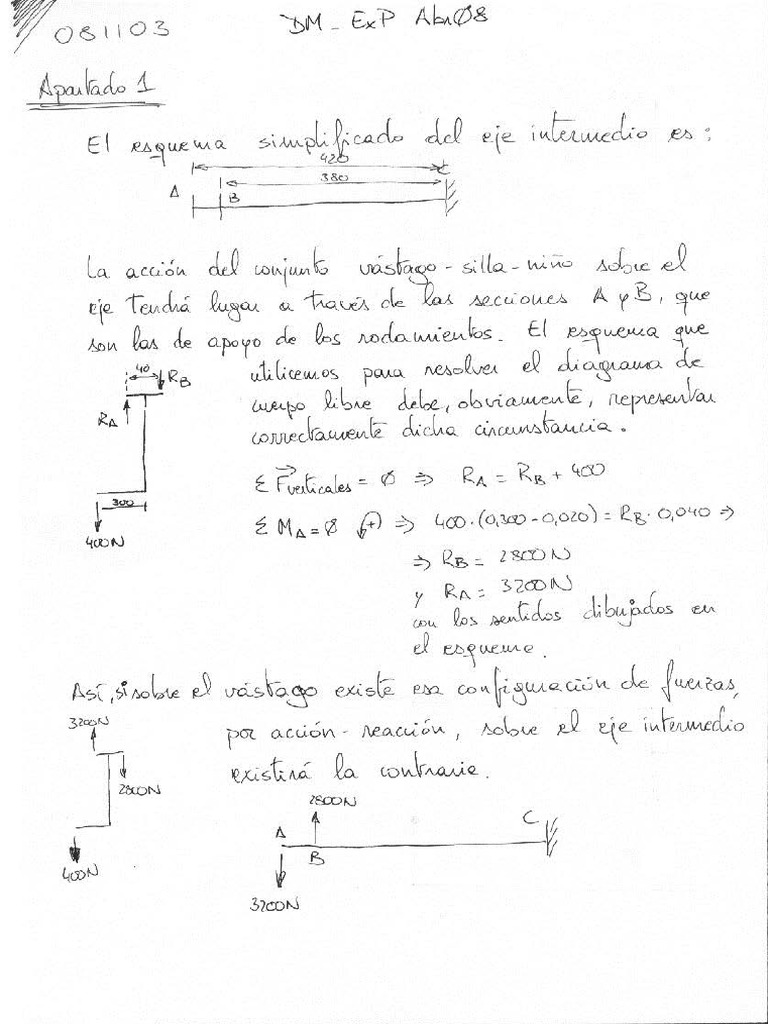 081103
DM_ExP Abr08
Apartado 1
El esquema simplificado del eje intermedio es:
420
C
380
A
B
La acción del conjunto vástago-silla-niño sobre el
eje tendrá lugar a través de las secciones A y B, que
son las de apoyo de los rodamientos. El esquema que
utilicemos para resolver el diagrama de
cuerpo libre debe, obviamente, representar
correctamente dicha circunstancia.
40
RB
RA
300
400N
Σ Fverticales = Ø ⇒ RA = RB + 400
Σ MA = Ø (+) ⇒ 400·(0,300-0,020) = RB·0,040 ⇒
⇒ RB = 2800N
y RA = 3200N
con los sentidos dibujados en
el esquema.
Así, si sobre el vástago existe esa configuración de fuerzas,
por acción-reacción, sobre el eje intermedio
existirá la contraria.
3200N
2800N
400N
2800N
A
B
C
3200N